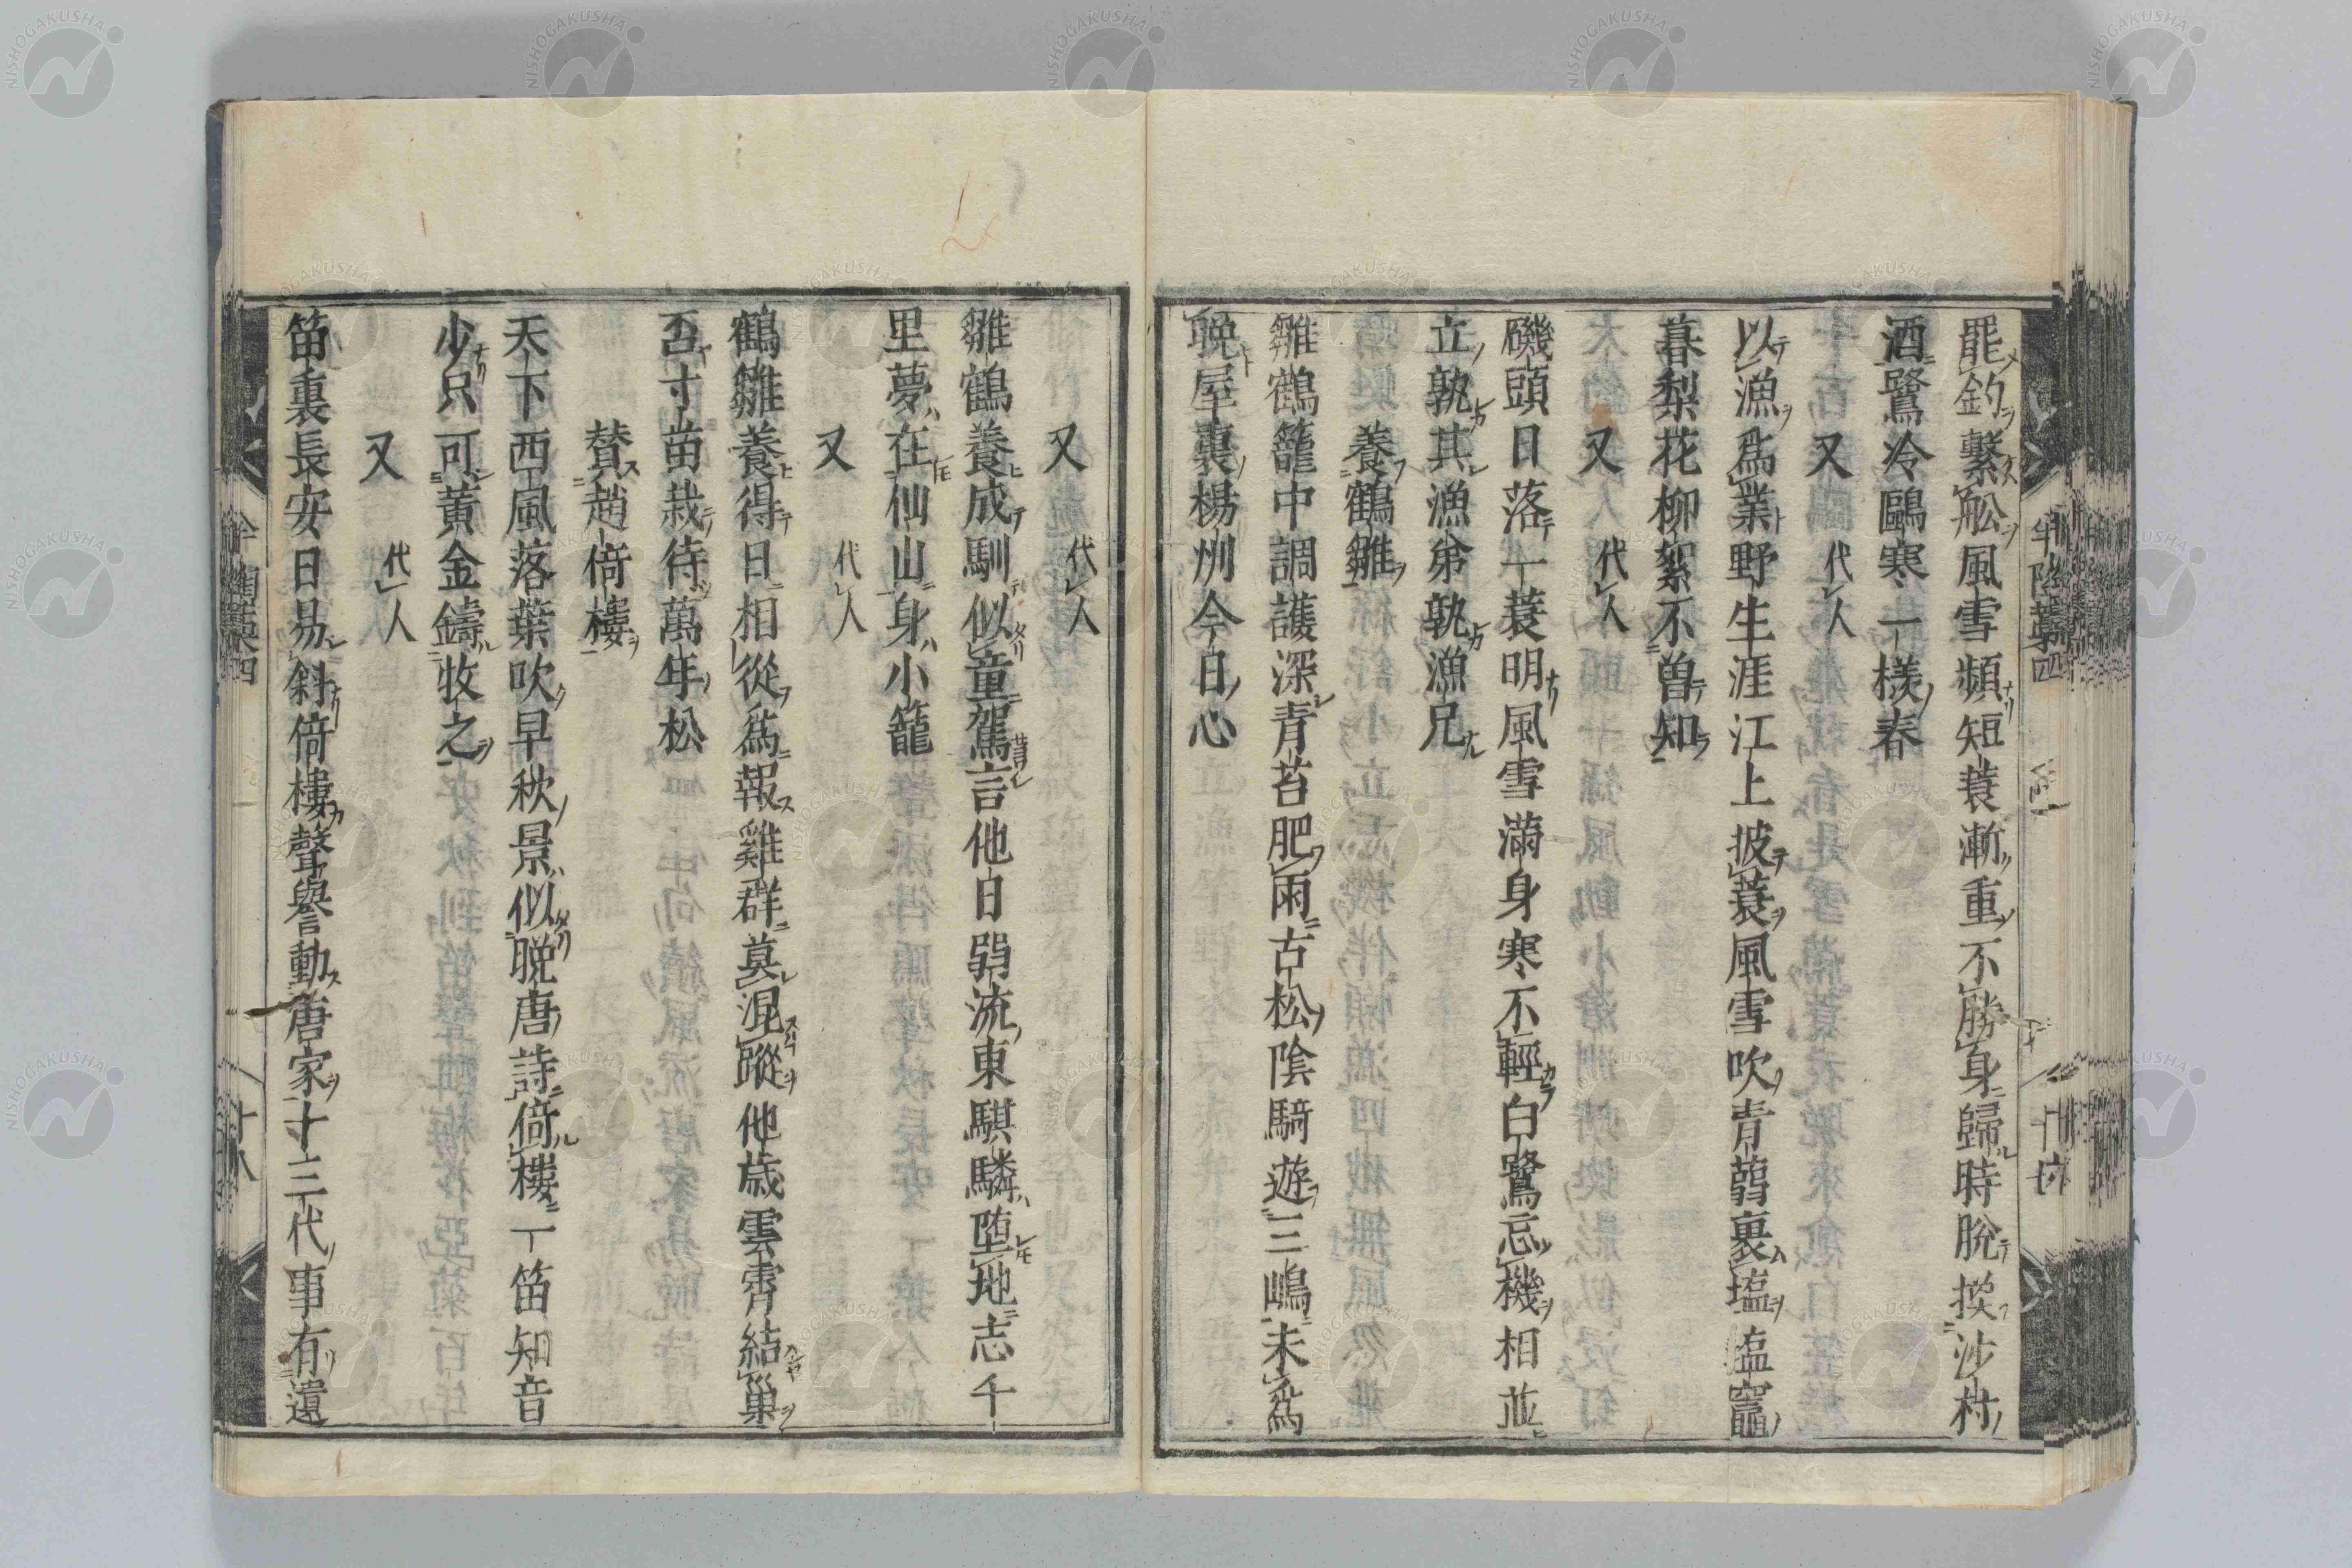 罷釣繋舩風雪頻短蓑漸重不勝身歸時脫換沙村
酒鷺冷鷗寒一樣春
又　代人
以漁爲業野生涯江上披蓑風雪吹青蒻裏塩塩竈
暮梨花柳絮不曽知
又　代人
磯頭日落一蓑明風雪滿身寒不輕白鷺忘機相並
立孰其漁弟孰漁兄
養鶴雛
雛鶴籠中調護深青苔肥雨古松陰騎遊三嶋未爲
晩屋裏楊州今日心
又　代人
雛鶴養成馴似童駕言他日弱流東騏驎堕地志千
里夢在仙山身小籠
又　代人
鶴雛養得日相從爲報雞群莫混蹤他歳雲霄結巢
否寸苗栽待萬年松
賛趙倚樓
天下西風落葉吹早秋景似晚唐詩倚樓一笛知音
少只可黄金鑄牧之
又　代人
笛裏長安日易斜倚樓聲譽動唐家十三代事有遺